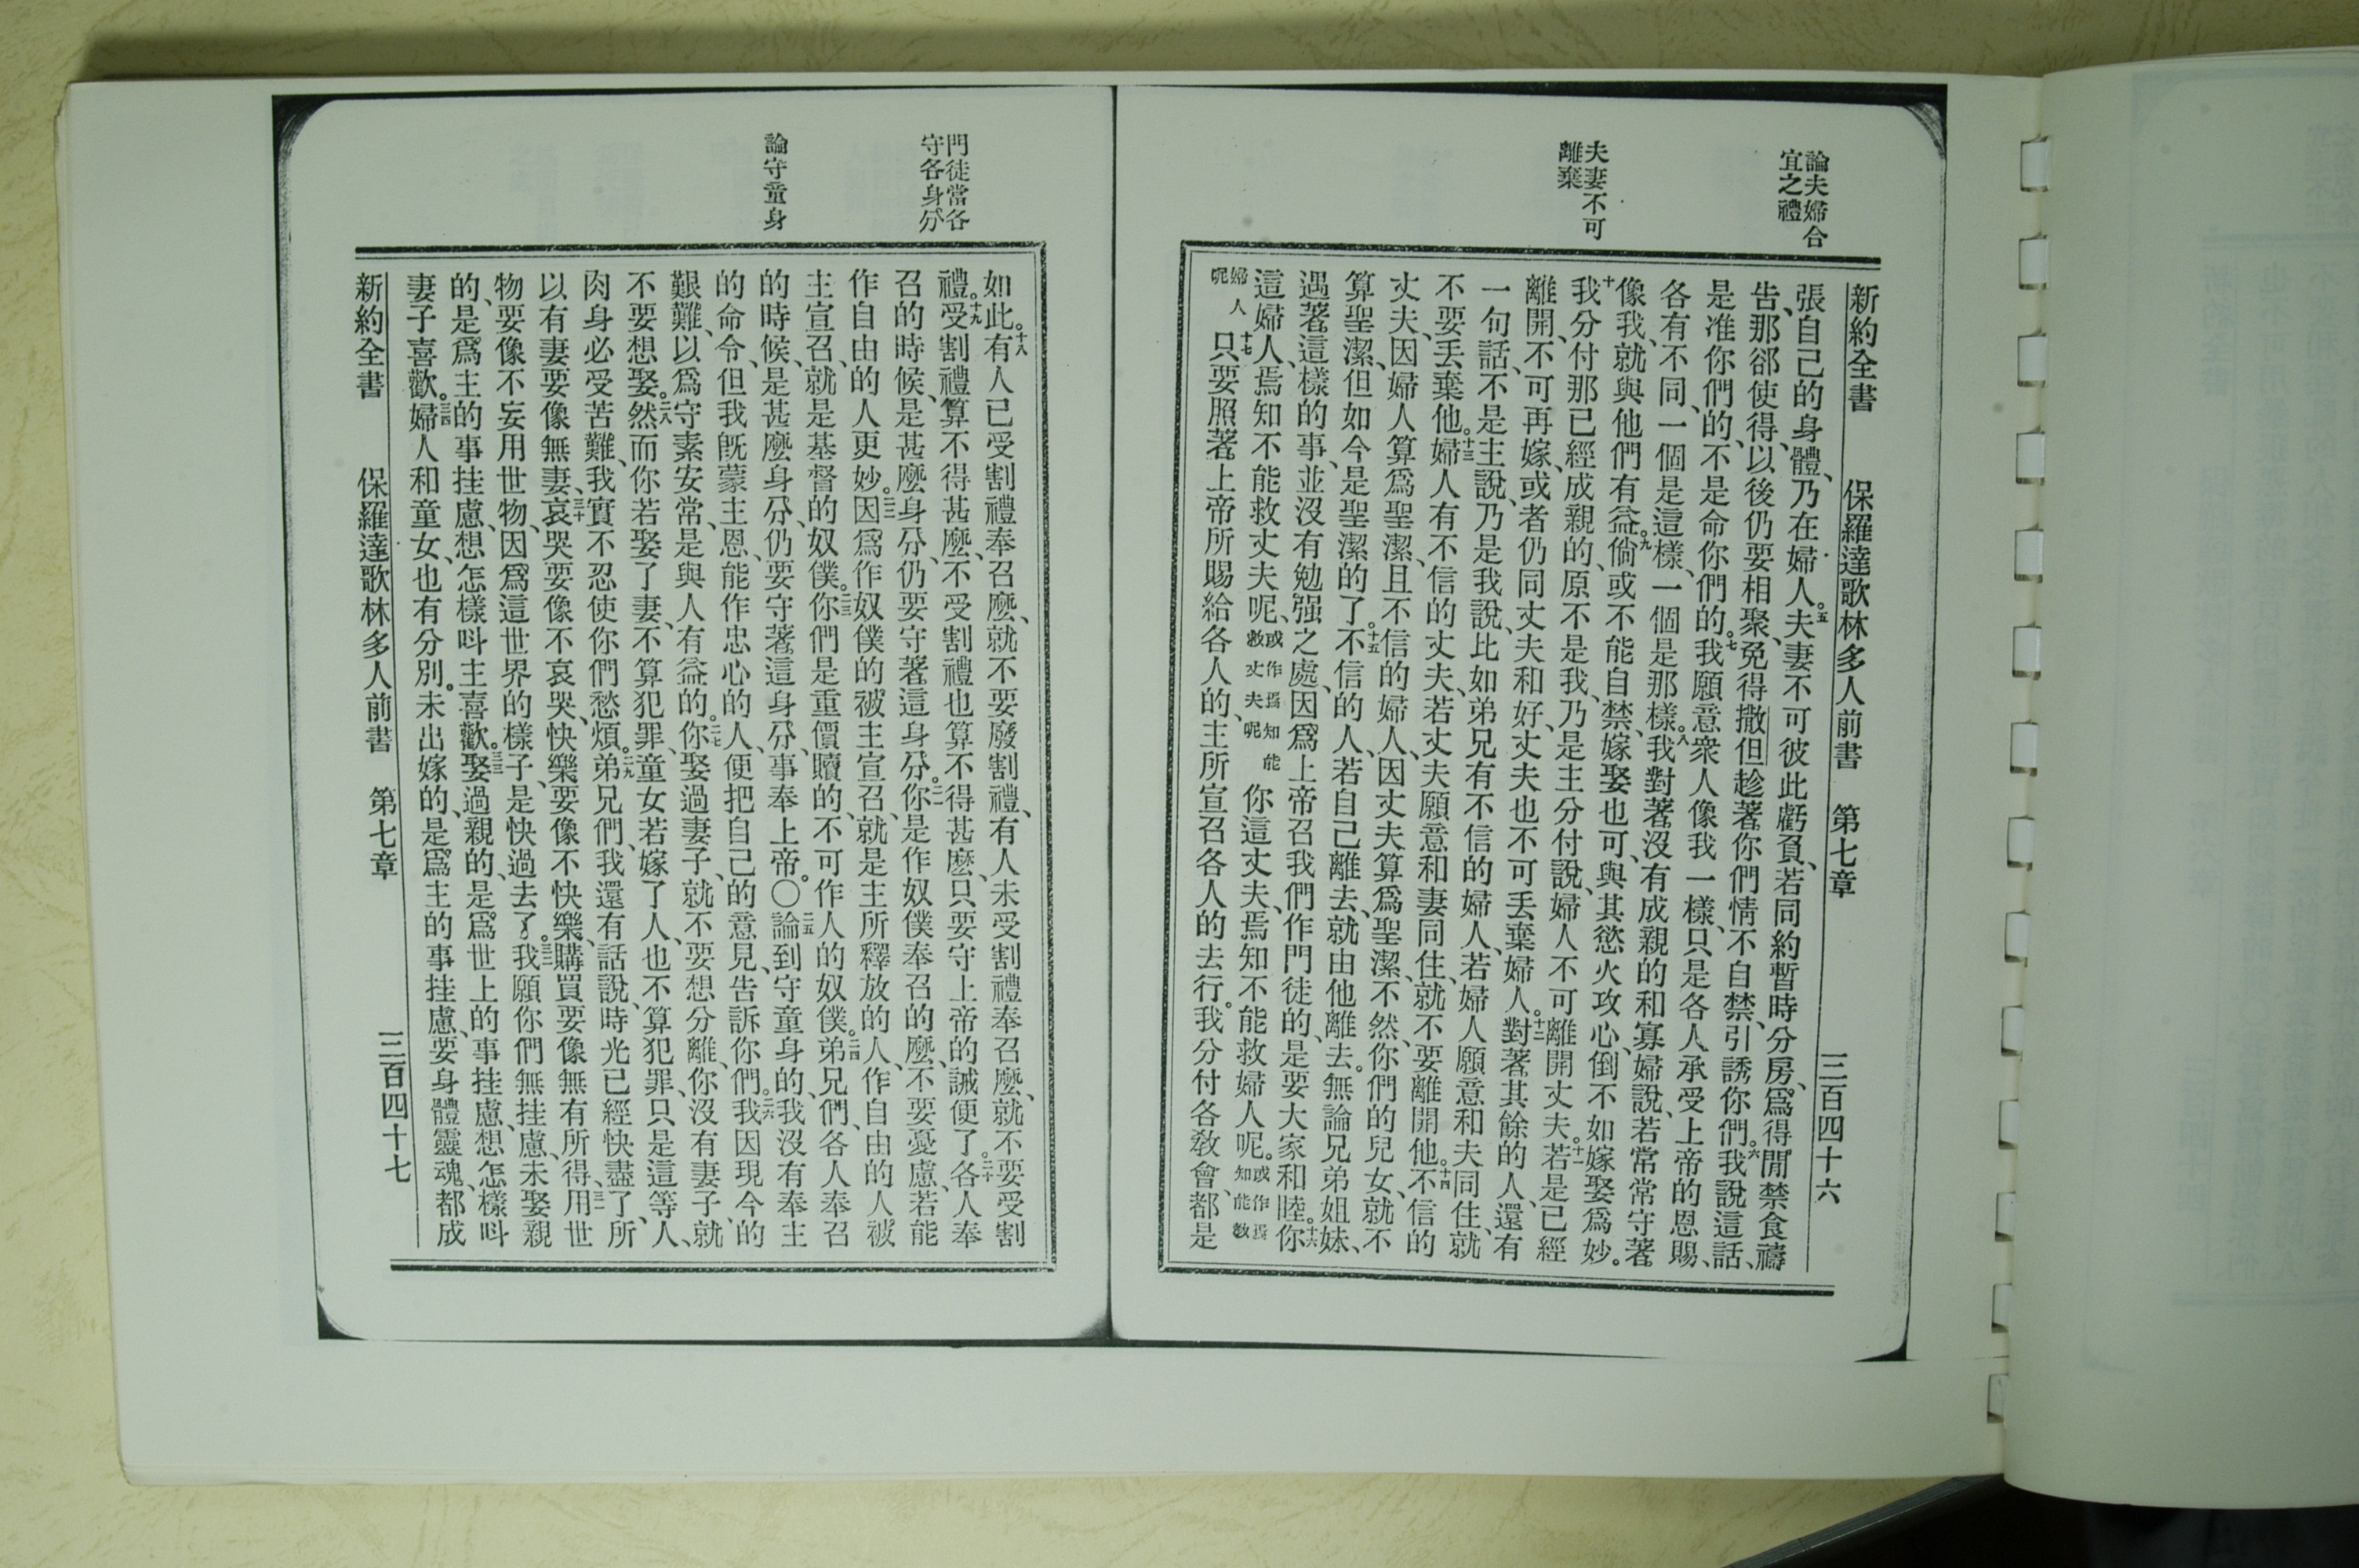 論夫婦合
宜之禮
夫妻不可
離棄
新約全書 保羅達歌林多人前書 第七章 三百四十六
張自己的身體、乃在婦人。五夫妻不可彼此虧負、若同約暫時分房、爲得閒禁食禱
告、那卻使得、以後仍要相聚、免得撒但趁著你們情不自禁、引誘你們。六我說這話、
是准你們的、不是命你們的。七我願意衆人像我一樣、只是各人承受上帝的恩賜、
各有不同、一個是這樣、一個是那樣。八我對著沒有成親的和寡婦說、若常常守著
像我、就與他們有益。九倘或不能自禁、嫁娶也可、與其慾火攻心、倒不如嫁娶爲妙。
十我分付那已經成親的、原不是我、乃是主分付說、婦人不可離開丈夫。十一若是已經
離開、不可再嫁、或者仍同丈夫和好、丈夫也不可丟棄婦人。十二對著其餘的人、還有
一句話、不是主說、乃是我說、比如弟兄有不信的婦人、若婦人願意和夫同住、就
不要丟棄他。十三婦人有不信的丈夫、若丈夫願意和妻同住、就不要離開他。十四不信的
丈夫、因婦人算爲聖潔、且不信的婦人、因丈夫算爲聖潔、不然、你們的兒女、就不
算聖潔、但如今是聖潔的了。十五不信的人、若自己離去、就由他離去。無論兄弟姐妹、
遇著這樣的事、並沒有勉强之處、因爲上帝召我們作門徒的、是要大家和睦。十六你
這婦人、焉知不能救丈夫呢、或作焉知能救丈夫呢 你這丈夫、焉知不能救婦人呢。或作焉知能救
婦人呢 十七只要照著上帝所賜給各人的、主所宣召各人的去行。我分付各敎會、都是
門徒當各
守各身分
論守童身
如此。十八有人已受割禮奉召麽、就不要廢割禮、有人未受割禮奉召麽、就不要受割
禮。十九受割禮算不得甚麽、不受割禮也算不得甚麽、只要守上帝的誡便了。二十各人奉
召的時候、是甚麽身分、仍要守著這身分。二一你是作奴僕奉召的麽、不要憂慮、若能
作自由的人更妙。二二因爲作奴僕的、被主宣召、就是主所釋放的人、作自由的人、被
主宣召、就是基督的奴僕。二三你們是重價贖的、不可作人的奴僕。二四弟兄們、各人奉召
的時候、是甚麽身分、仍要守著這身分、事奉上帝。〇二五論到守童身的、我沒有奉主
的命令、但我旣蒙主恩、能作忠心的人、便把自己的意見、告訴你們。二六我因現今的
艱難、以爲守素安常、是與人有益的。二七你娶過妻子、就不要想分離、你沒有妻子、就
不要想娶。二八然而你若娶了妻、不算犯罪、童女若嫁了人、也不算犯罪、只是這等人、
肉身必受苦難、我實不忍使你們愁煩。二九弟兄們、我還有話說、時光已經快盡了、所
以有妻要像無妻、三十哀哭要像不哀哭、快樂要像不快樂、購買要像無有所得、三一用世
物要像不妄用世物、因爲這世界的樣子、是快過去了。三二我願你們無挂慮、未娶親
的、是爲主的事挂慮、想怎樣呌主喜歡。三三娶過親的、是爲世上的事挂慮、想怎樣呌
妻子喜歡。三四婦人和童女、也有分別。未出嫁的、是爲主的事挂慮、要身體靈魂、都成
新約全書 保羅達歌林多人前書 第七章 三百四十七